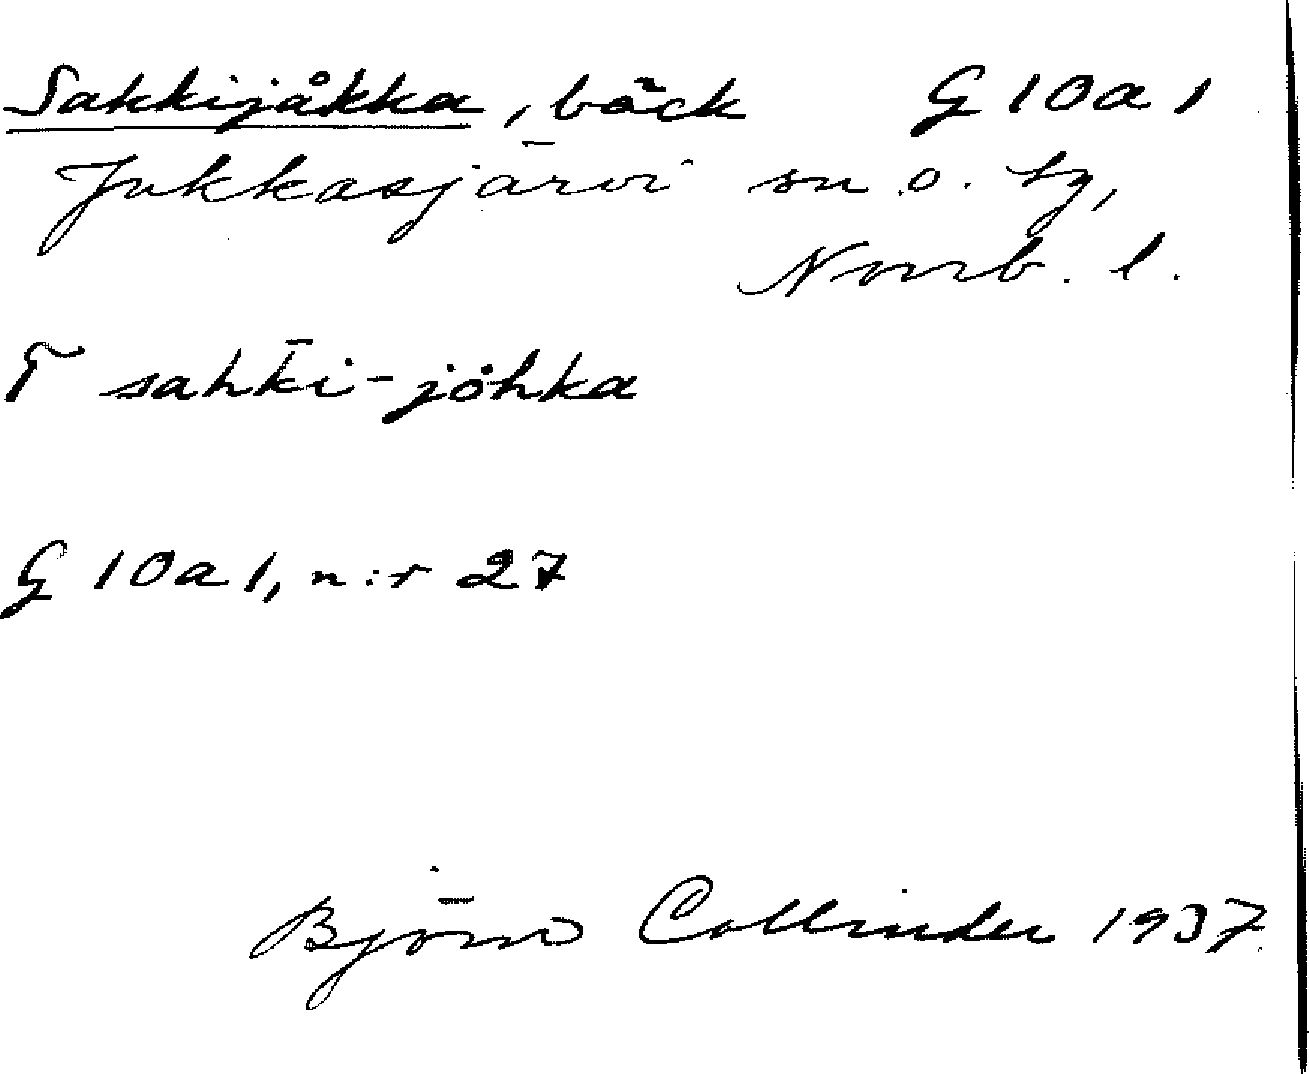 Sakkijåkka, bäck G 10a1
Jukkasjärvi sn o. tg,
Norrb. l.
T sahk̄i-jöhka
G 10a1, n:r 27
Björn Collinder 1937